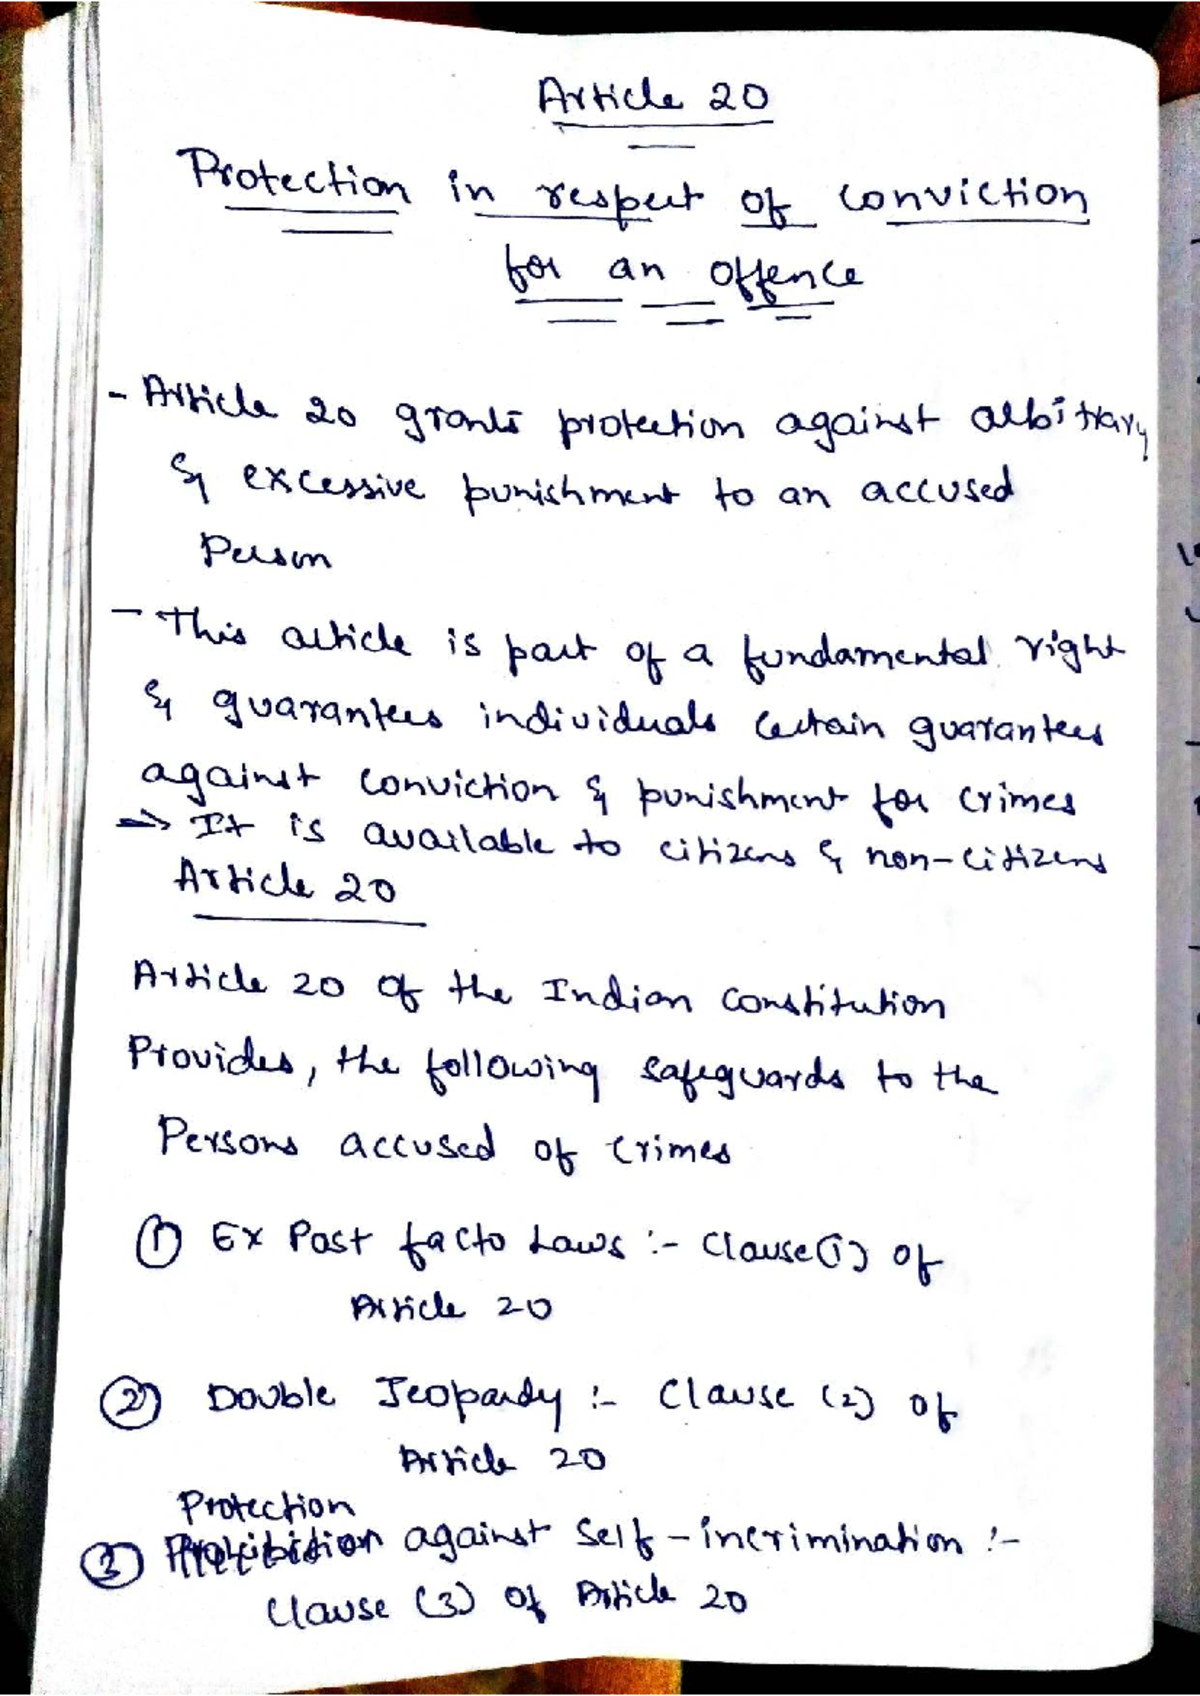 Article 20
Protection in respect of conviction
for an offence
- Article 20 grants protection against arbitrary
& excessive punishment to an accused
Person
- This article is part of a fundamental right
& guarantees individuals certain guarantees
against conviction & punishment for crimes
⇒ It is available to citizens & non-citizens
Article 20
Article 20 of the Indian Constitution
Provides, the following safeguards to the
Persons accused of crimes
① Ex Post facto Laws :- Clause(1) of
Article 20
② Double Jeopardy :- Clause (2) of
Article 20
Protection
③ Prohibition against Self-incrimination :-
Clause (3) of Article 20